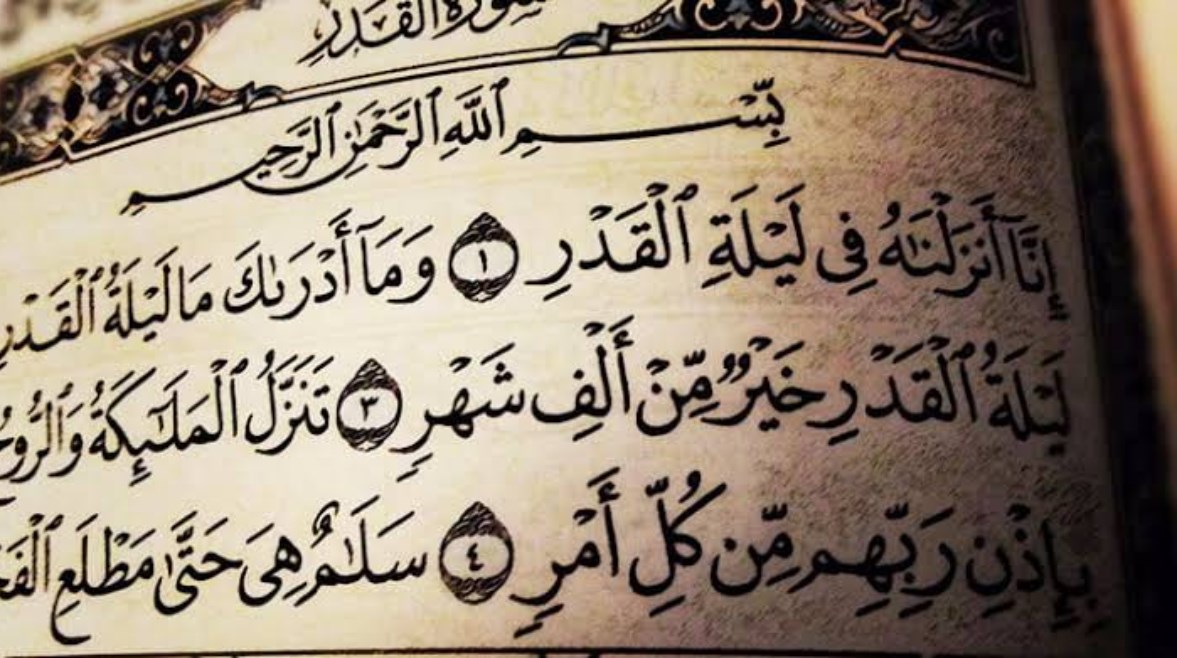 سُورَةُ القَدْرِ
بِّسْمِ ٱللَّهِ ٱلرَّحْمَٰنِ ٱلرَّحِيمِ
إِنَّآ أَنزَلْنَٰهُ فِى لَيْلَةِ ٱلْقَدْرِ ١ وَمَآ أَدْرَىٰكَ مَا لَيْلَةُ ٱلْقَدْرِ
لَيْلَةُ ٱلْقَدْرِ خَيْرٌ مِّنْ أَلْفِ شَهْرٍ ٣ تَنَزَّلُ ٱلْمَلَٰٓئِكَةُ وَٱلرُّوحُ
بِإِذْنِ رَبِّهِم مِّن كُلِّ أَمْرٍ ٤ سَلَٰمٌ هِىَ حَتَّىٰ مَطْلَعِ